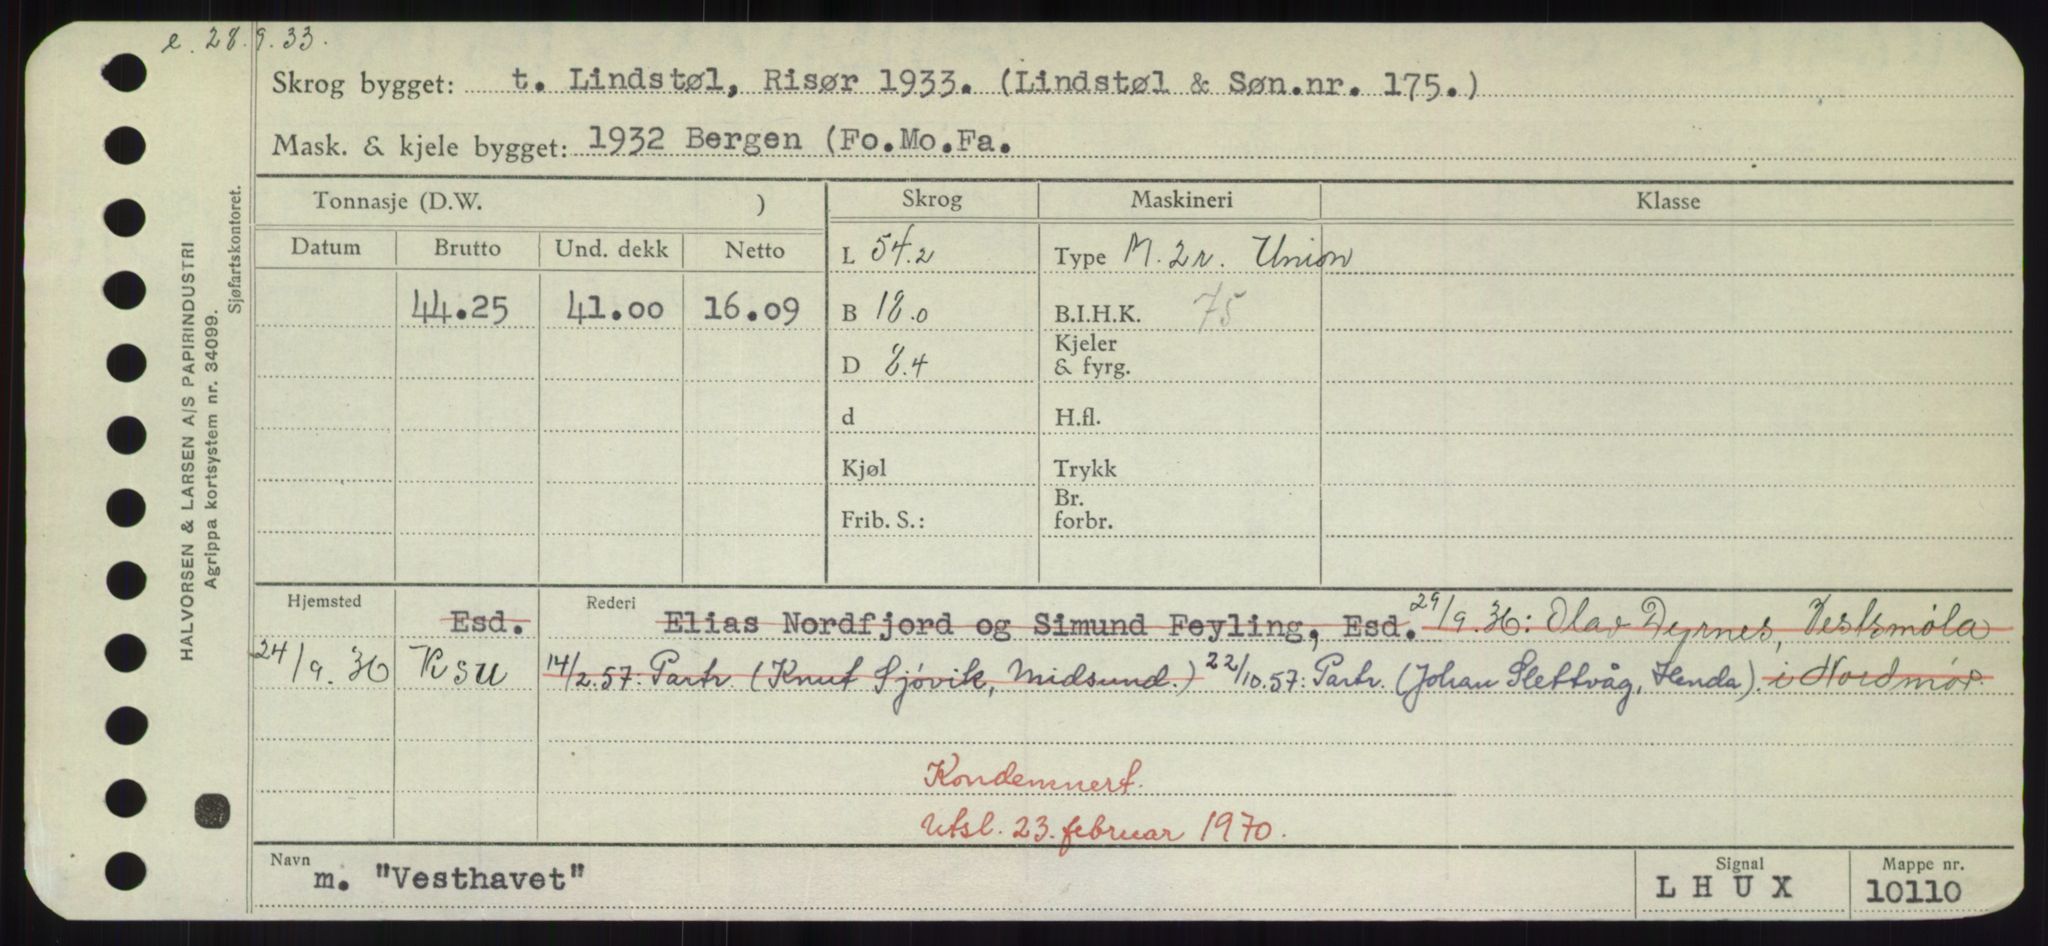 e. 28.9.33.
Skrog bygget: t. Lindstøl, Risør 1933. (Lindstøl & Søn.nr. 175.)
Mask. & kjele bygget: 1932 Bergen (Fo.Mo.Fa.
Tonnasje (D.W. ) Skrog Maskineri Klasse
Datum Brutto Und. dekk Netto L 54.2 Type M. 2r. Union
44.25 41.00 16.09 B 18.0 B.I.H.K. 75
D 8.4 Kjeler & fyrg.
d H.fl.
Kjøl Trykk
Frib. S.: Br. forbr.
Hjemsted Esd. Rederi Elias Nordfjord og Simund Feyling, Esd. 29/9.36: Olav Dyrnes, Vestsmøla
24/9.36 Ksu 14/2.57: Partr (Knut Sjóvik, Midsund.) 22/10.57: Partr. (Johan Slettvåg, Henda). i Nordmør.
Kondemnert.
Utsl. 23. februar 1970.
Navn m. "Vesthavet" Signal LHUX Mappe nr. 10110
HALVORSEN & LARSEN A/S PAPIRINDUSTRI
Agrippa kortsystem nr. 34099.
Sjøfartskontoret.